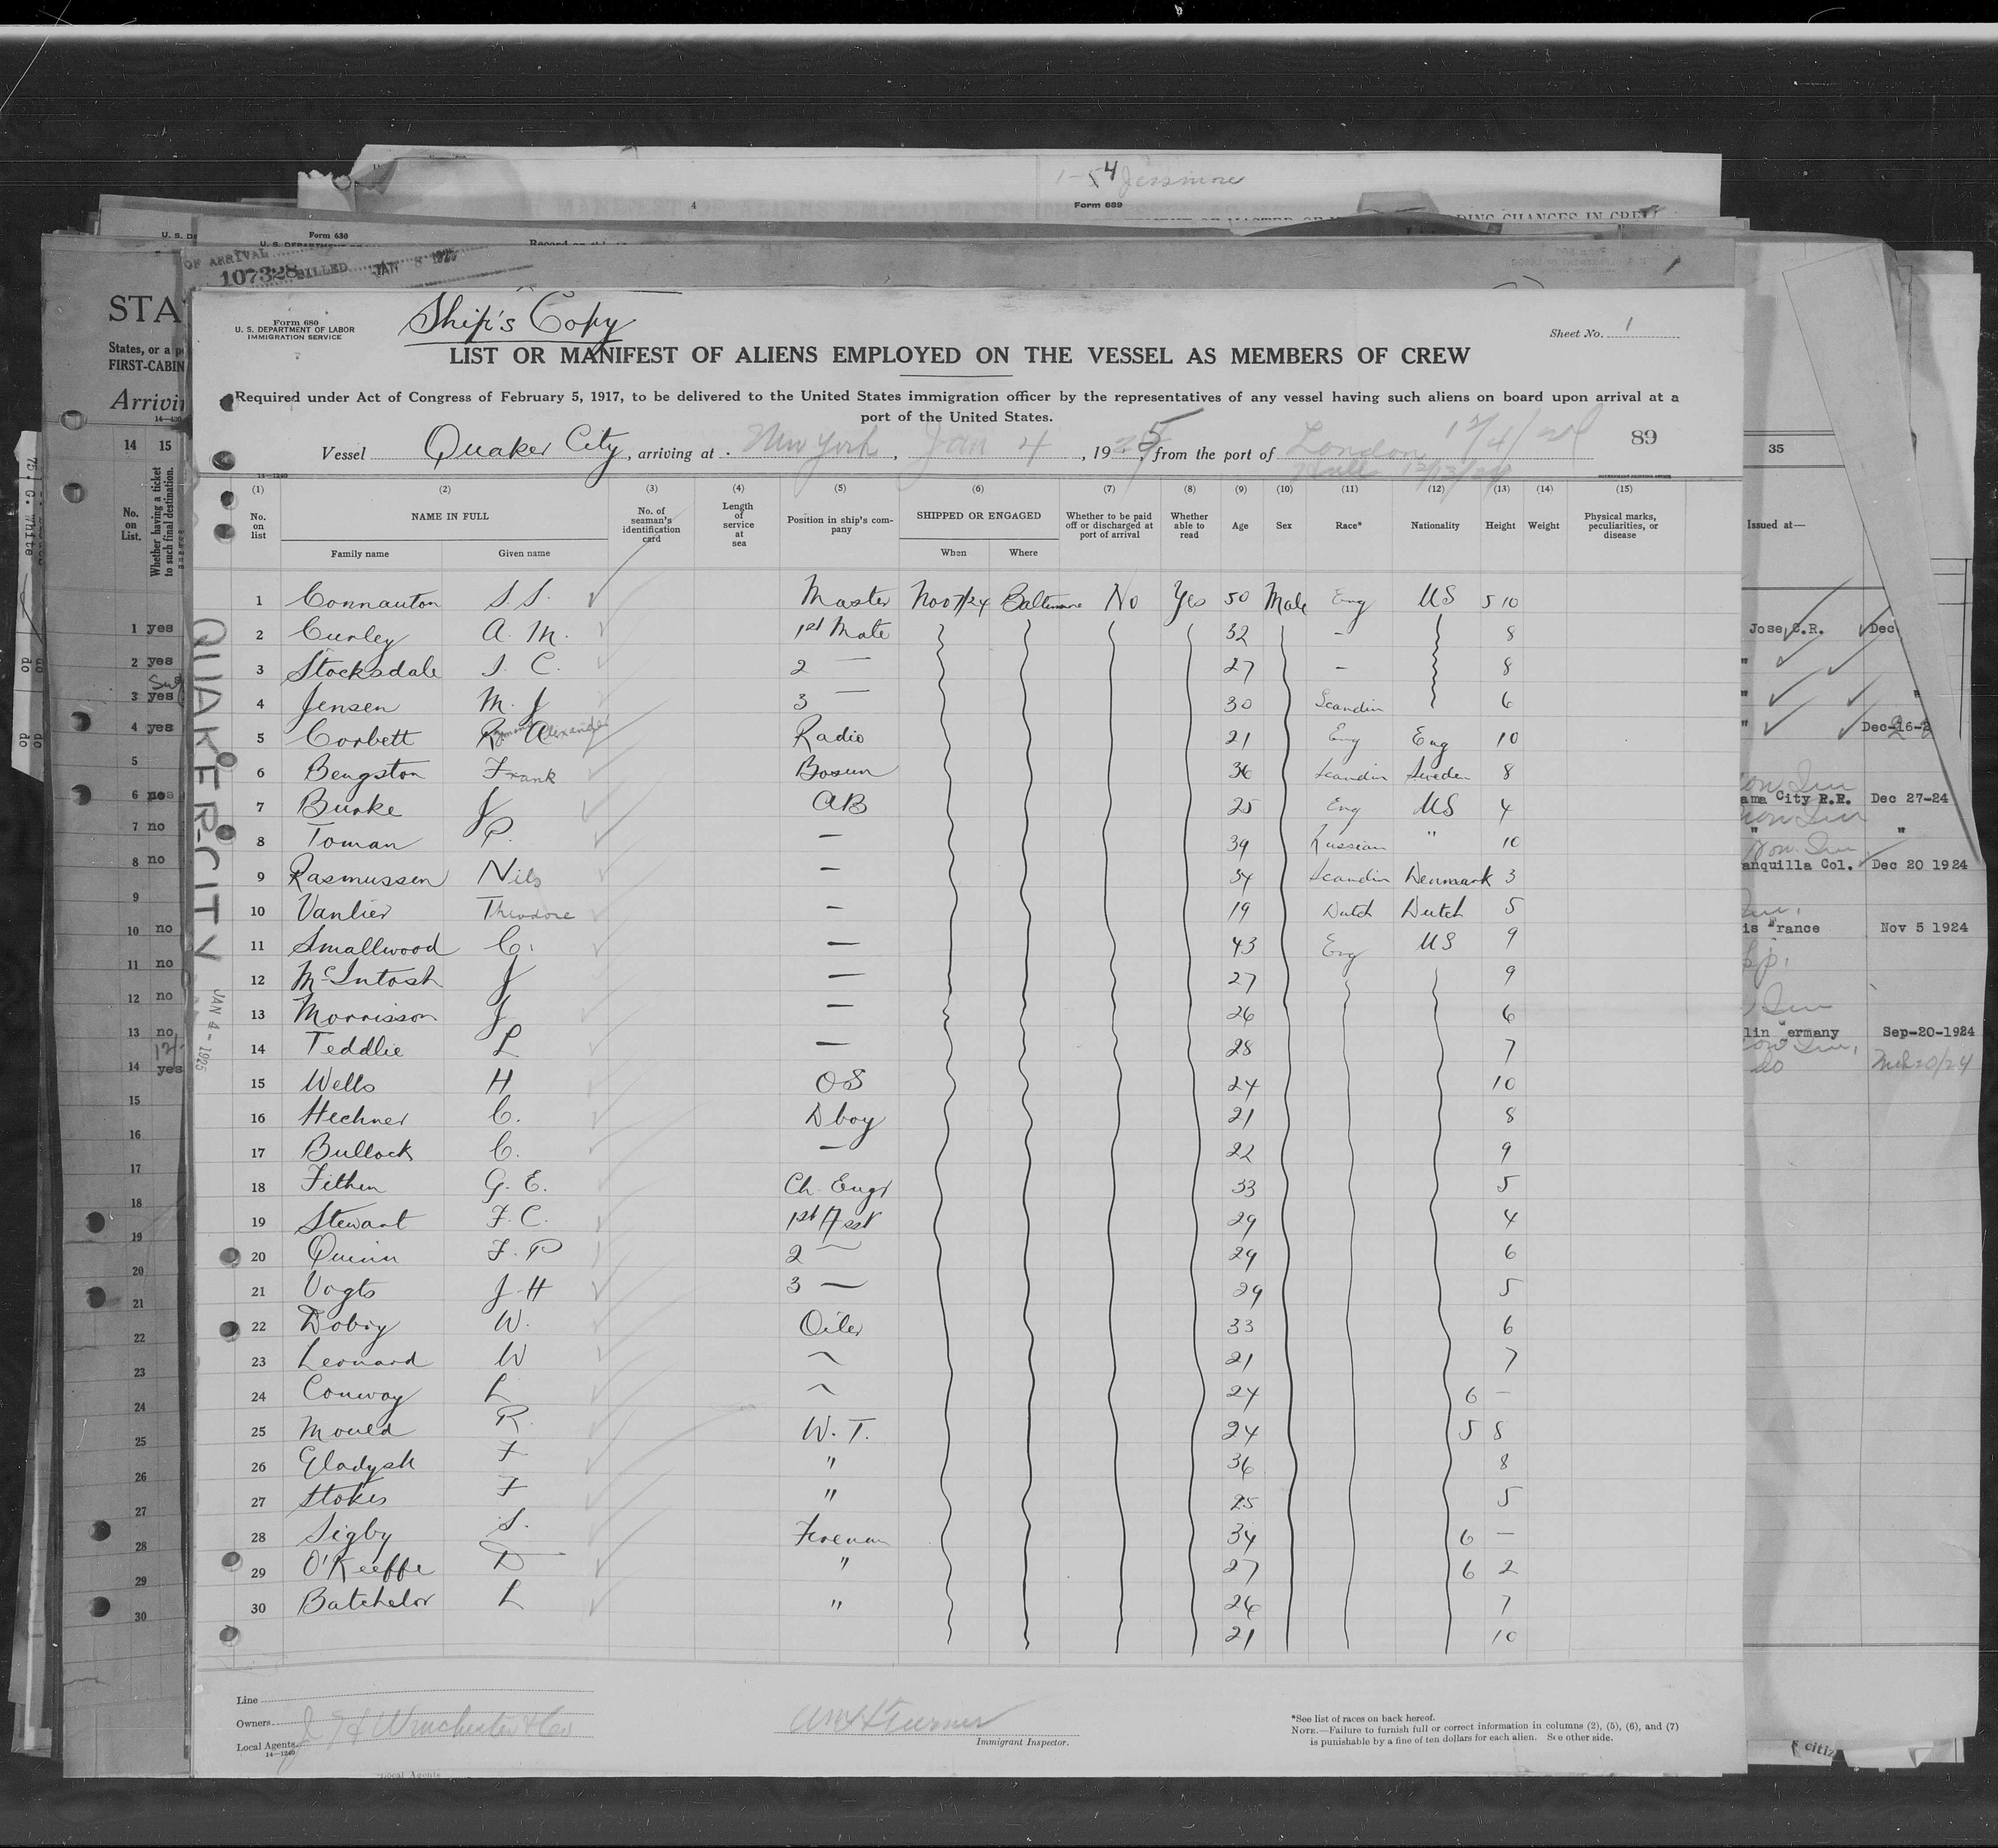 1-54 Jessmore
4
Form 689
Form 630
OF ARRIVAL
107328 BILLED JAN 8 1925
STA
States, or a p
FIRST-CABIN
Arrivin
Form 680
U. S. DEPARTMENT OF LABOR
IMMIGRATION SERVICE
Ship's Copy
Sheet No. 1
LIST OR MANIFEST OF ALIENS EMPLOYED ON THE VESSEL AS MEMBERS OF CREW
Required under Act of Congress of February 5, 1917, to be delivered to the United States immigration officer by the representatives of any vessel having such aliens on board upon arrival at a
port of the United States.
Vessel Quaker City, arriving at New York, Jan 4, 1925, from the port of London
89
Hull 12/13/24
14-1240
(1) (2) (3) (4) (5) (6) (7) (8) (9) (10) (11) (12) (13) (14) (15)
No. on list
NAME IN FULL
Family name
Given name
No. of seaman's identification card
Length of service at sea
Position in ship's company
SHIPPED OR ENGAGED
When
Where
Whether to be paid off or discharged at port of arrival
Whether able to read
Age
Sex
Race*
Nationality
Height
Weight
Physical marks, peculiarities, or disease
1 Connauton S. S. Master Nov 7/24 Baltimore No Yes 50 Male Eng US 5 10
2 Curley A. M. 1st Mate 32 - 8
3 Stocksdale S. C. 2 — 27 - 8
4 Jensen M. J 3 — 30 Scandin 6
5 Corbett Raymond Alexander Radio 21 Eng Eng 10
6 Bengston Frank Bosun 36 Scandin Sweden 8
7 Burke J AB 25 Eng US 4
8 Toman P. — 39 Russian " 10
9 Rasmussen Nils — 34 Scandin Denmark 3
10 Vanlier Theodore — 19 Dutch Dutch 5
11 Smallwood C. — 43 Eng US 9
12 McIntosh J — 27 9
13 Morrisson J — 26 6
14 Teddlie L — 28 7
15 Wells H OS 24 10
16 Hechner C. D boy 21 8
17 Bullock C. — 22 9
18 Fithen G. E. Ch. Engr 33 5
19 Stewart F. C. 1st Asst 29 4
20 Quinn F. P 2 — 29 6
21 Vogts J. H 3 — 29 5
22 Dobry W. Oiler 33 6
23 Leonard W — 21 7
24 Conway L — 24 6 —
25 Mould R. W. T. 24 5 8
26 Gladysh F " 36 8
27 Stokes F " 25 5
28 Sigby S. Fireman 34 6 —
29 O'Keeffe D " 27 6 2
30 Batchelor L " 26 7
21 10
QUAKER-CITY JAN 4 - 1925
Line
Owners
Local Agents J. H Winchester & Co
14-1240
Immigrant Inspector.
*See list of races on back hereof.
NOTE.—Failure to furnish full or correct information in columns (2), (5), (6), and (7)
is punishable by a fine of ten dollars for each alien. See other side.
14 15
No. on List.
Whether having a ticket to such final destination.
1 yes
2 yes
3 yes
4 yes
5
6
7 no
8 no
9
10 no
11 no
12 no
13 no
14 yes
15
16
17
18
19
20
21
22
23
24
25
26
27
28
29
30
35
Issued at—
Jose C.R. Dec
Dec-16-2
ama City R.R. Dec 27-24
" "
anquilla Col. Dec 20 1924
is France Nov 5 1924
lin Germany Sep-20-1924
do
citiz